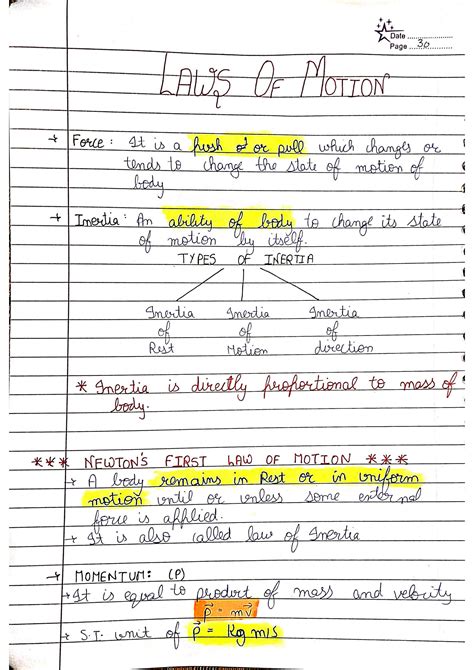 Date
Page 30
LAWS OF MOTION
→ Force : It is a push or pull which changes or
tends to change the state of motion of
body
→ Inertia : An ability of body to change its state
of motion by itself.
TYPES OF INERTIA
Inertia Inertia Inertia
of of of
Rest Motion direction
* Inertia is directly proportional to mass of
body.
*** NEWTON'S FIRST LAW OF MOTION ***
→ A body remains in Rest or in uniform
motion until or unless some external
force is applied.
→ It is also called law of Inertia
→ MOMENTUM: (P)
→ It is equal to product of mass and velocity
p⃗ = mv⃗
→ S.I. unit of p⃗ = Kg m/s